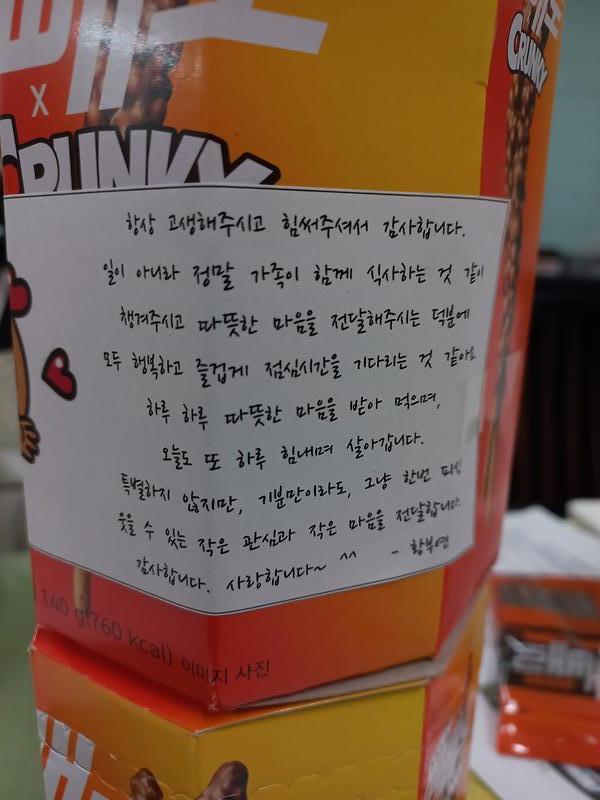 빼빼로
x
CRUNKY
CRUNKY
항상 고생해주시고 힘써주셔서 감사합니다.
일이 아니라 정말 가족이 함께 식사하는 것 같이
챙겨주시고 따뜻한 마음을 전달해주시는 덕분에
모두 행복하고 즐겁게 점심시간을 기다리는 것 같아요.
하루 하루 따뜻한 마음을 받아 먹으며,
오늘도 또 하루 힘내며 살아갑니다.
특별하지 않지만, 기분만이라도, 그냥 한번 피식
웃을 수 있는 작은 관심과 작은 마음을 전달합니다.
감사합니다. 사랑합니다~ ^^ - 황부연
140 g(760 kcal) 이미지 사진